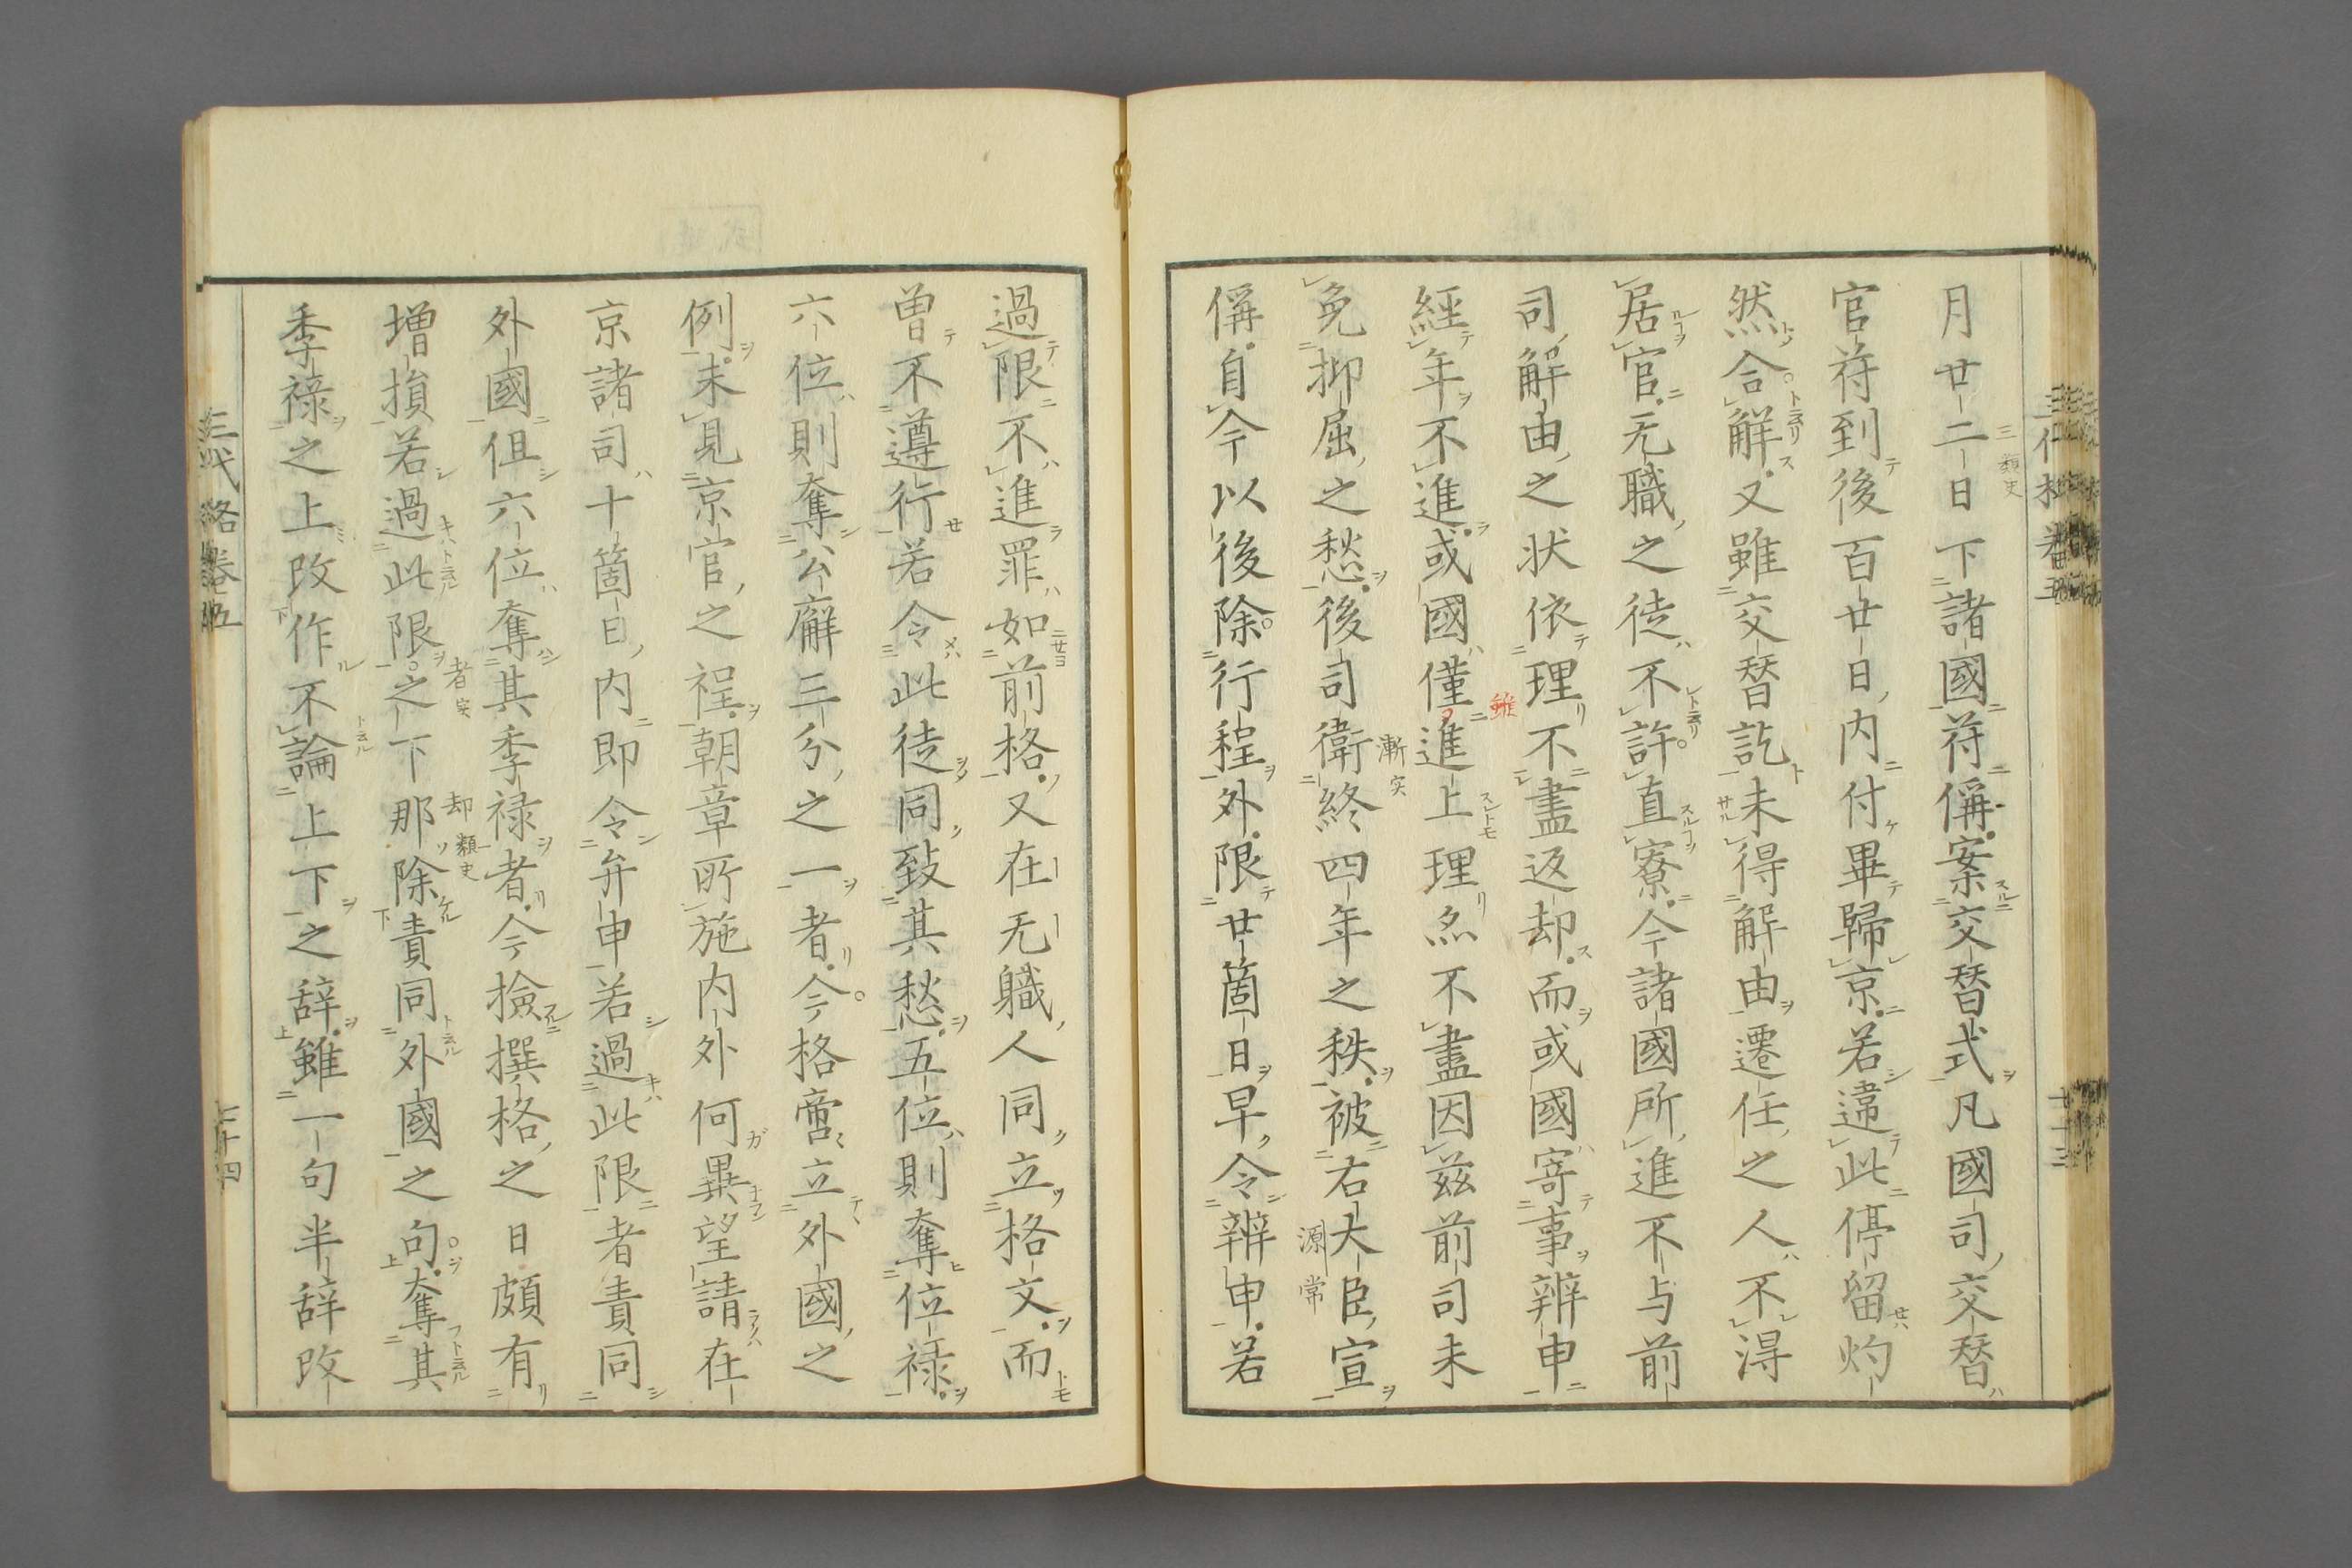 月廿二日下諸國符偁案交替式凡國司交替
官符到後百廿日内付畢歸京若違此停留灼
然合解又雖交替訖未得解由遷任之人不淂
居官无職之徒不許直寮今諸國所進不与前
司解由之状依理不盡返却而或國寄事辨申
經年不進或國僅進上理亦不盡因茲前司未
免抑屈之愁後司衛終四年之秩被右大臣宣
偁自今以後除行程外限廿箇日早令辨申若
過限不進罪如前格又在无職人同立格文而
曽不遵行若令此徒同致其愁五位則奪位禄
六位則奪公廨三分之一者今格啻立外國之
例未見京官之程朝章所施内外何異望請在
京諸司十箇日内即令弁申若過此限者責同
外國但六位奪其季禄者今撿撰格之日頗有
増損若過此限之下那除責同外國之句奪其
季禄之上改作不論上下之辞雖一句半辞改
三代 畧 卷五
七十四